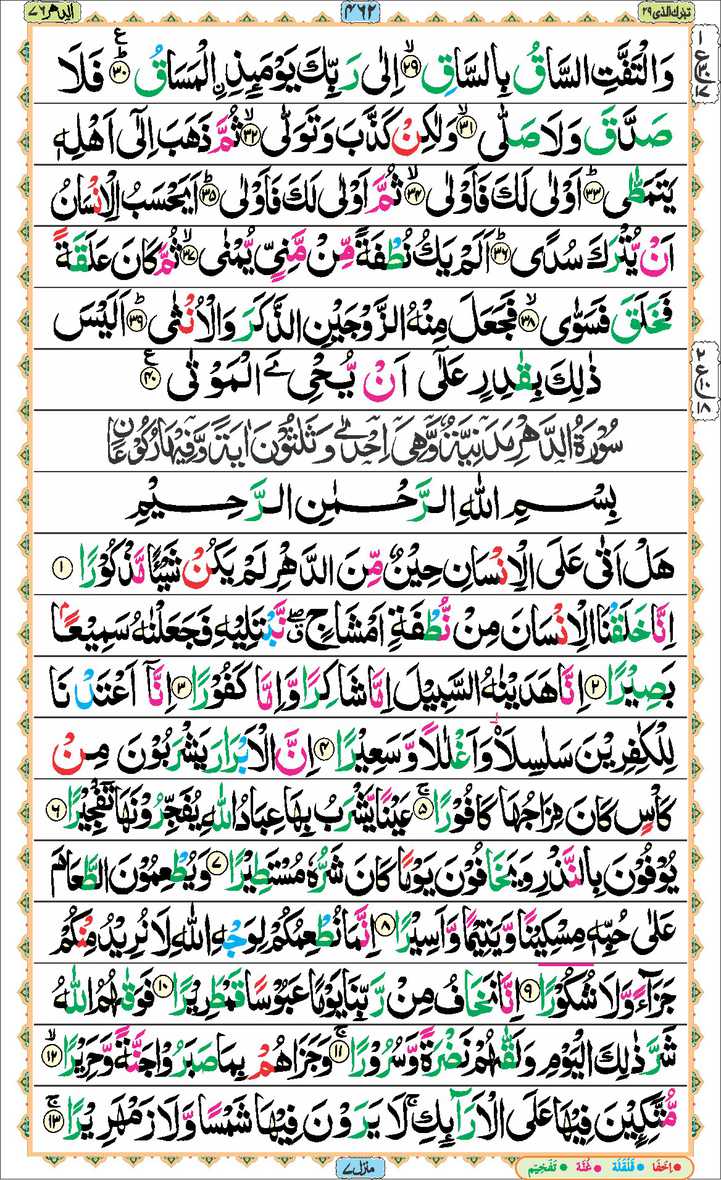 تبٰرك الذی ٢٩
٤٦٢
الدھر ٧٦
وَالْتَفَّتِ السَّاقُ بِالسَّاقِ ۙ﴿٢٩﴾ اِلٰى رَبِّكَ يَوْمَئِذِ ࣙالْمَسَاقُ ؕ﴿٣٠﴾ ع فَلَا
صَدَّقَ وَلَا صَلّٰى ۙ﴿٣١﴾ وَلٰكِنْ كَذَّبَ وَتَوَلّٰى ۙ﴿٣٢﴾ ثُمَّ ذَهَبَ اِلٰٓى اَهْلِهٖ
يَتَمَطّٰى ؕ﴿٣٣﴾ اَوْلٰى لَكَ فَاَوْلٰى ۙ﴿٣٤﴾ ثُمَّ اَوْلٰى لَكَ فَاَوْلٰى ؕ﴿٣٥﴾ اَيَحْسَبُ الْاِنْسَانُ
اَنْ يُّتْرَكَ سُدًى ؕ﴿٣٦﴾ اَلَمْ يَكُ نُطْفَةً مِّنْ مَّنِيٍّ يُّمْنٰى ۙ﴿٣٧﴾ ثُمَّ كَانَ عَلَقَةً
فَخَلَقَ فَسَوّٰى ۙ﴿٣٨﴾ فَجَعَلَ مِنْهُ الزَّوْجَيْنِ الذَّكَرَ وَالْاُنْثٰى ؕ﴿٣٩﴾ اَلَيْسَ
ذٰلِكَ بِقٰدِرٍ عَلٰٓى اَنْ يُّحْیِۦَ الْمَوْتٰى ﴿٤٠﴾ ع
سُوْرَةُ الدَّهْرِ مَدَنِيَّةٌ وَّهِىَ اِحْدٰى وَثَلٰثُوْنَ اٰيَةً وَّفِيْهَا رُكُوْعَانِ
بِسْمِ اللهِ الرَّحْمٰنِ الرَّحِيْمِ
هَلْ اَتٰى عَلَى الْاِنْسَانِ حِيْنٌ مِّنَ الدَّهْرِ لَمْ يَكُنْ شَيْئًا مَّذْكُوْرًا ﴿١﴾
اِنَّا خَلَقْنَا الْاِنْسَانَ مِنْ نُّطْفَةٍ اَمْشَاجٍ ۖق نَّبْتَلِيْهِ فَجَعَلْنٰهُ سَمِيْعًۢا
بَصِيْرًا ﴿٢﴾ اِنَّا هَدَيْنٰهُ السَّبِيْلَ اِمَّا شَاكِرًا وَّاِمَّا كَفُوْرًا ﴿٣﴾ اِنَّآ اَعْتَدْنَا
لِلْكٰفِرِيْنَ سَلٰسِلَا۟ وَاَغْلٰلًا وَّسَعِيْرًا ﴿٤﴾ اِنَّ الْاَبْرَارَ يَشْرَبُوْنَ مِنْ
كَاْسٍ كَانَ مِزَاجُهَا كَافُوْرًا ۚ﴿٥﴾ عَيْنًا يَّشْرَبُ بِهَا عِبَادُ اللهِ يُفَجِّرُوْنَهَا تَفْجِيْرًا ﴿٦﴾
يُوْفُوْنَ بِالنَّذْرِ وَيَخَافُوْنَ يَوْمًا كَانَ شَرُّهٗ مُسْتَطِيْرًا ﴿٧﴾ وَيُطْعِمُوْنَ الطَّعَامَ
عَلٰى حُبِّهٖ مِسْكِيْنًا وَّيَتِيْمًا وَّاَسِيْرًا ﴿٨﴾ اِنَّمَا نُطْعِمُكُمْ لِوَجْهِ اللهِ لَا نُرِيْدُ مِنْكُمْ
جَزَآءً وَّلَا شُكُوْرًا ﴿٩﴾ اِنَّا نَخَافُ مِنْ رَّبِّنَا يَوْمًا عَبُوْسًا قَمْطَرِيْرًا ﴿١٠﴾ فَوَقٰهُمُ اللهُ
شَرَّ ذٰلِكَ الْيَوْمِ وَلَقّٰهُمْ نَضْرَةً وَّسُرُوْرًا ۚ﴿١١﴾ وَجَزٰهُمْ بِمَا صَبَرُوْا جَنَّةً وَّحَرِيْرًا ۙ﴿١٢﴾
مُّتَّكِـِٕيْنَ فِيْهَا عَلَى الْاَرَآئِكِ ۚ لَا يَرَوْنَ فِيْهَا شَمْسًا وَّلَا زَمْهَرِيْرًا ۚ﴿١٣﴾
ع ١ ٣٠ ١٧
ع ٢ ١٠ ١٨
منزل ٧
اخفا قلقلة غنّة تفخيم